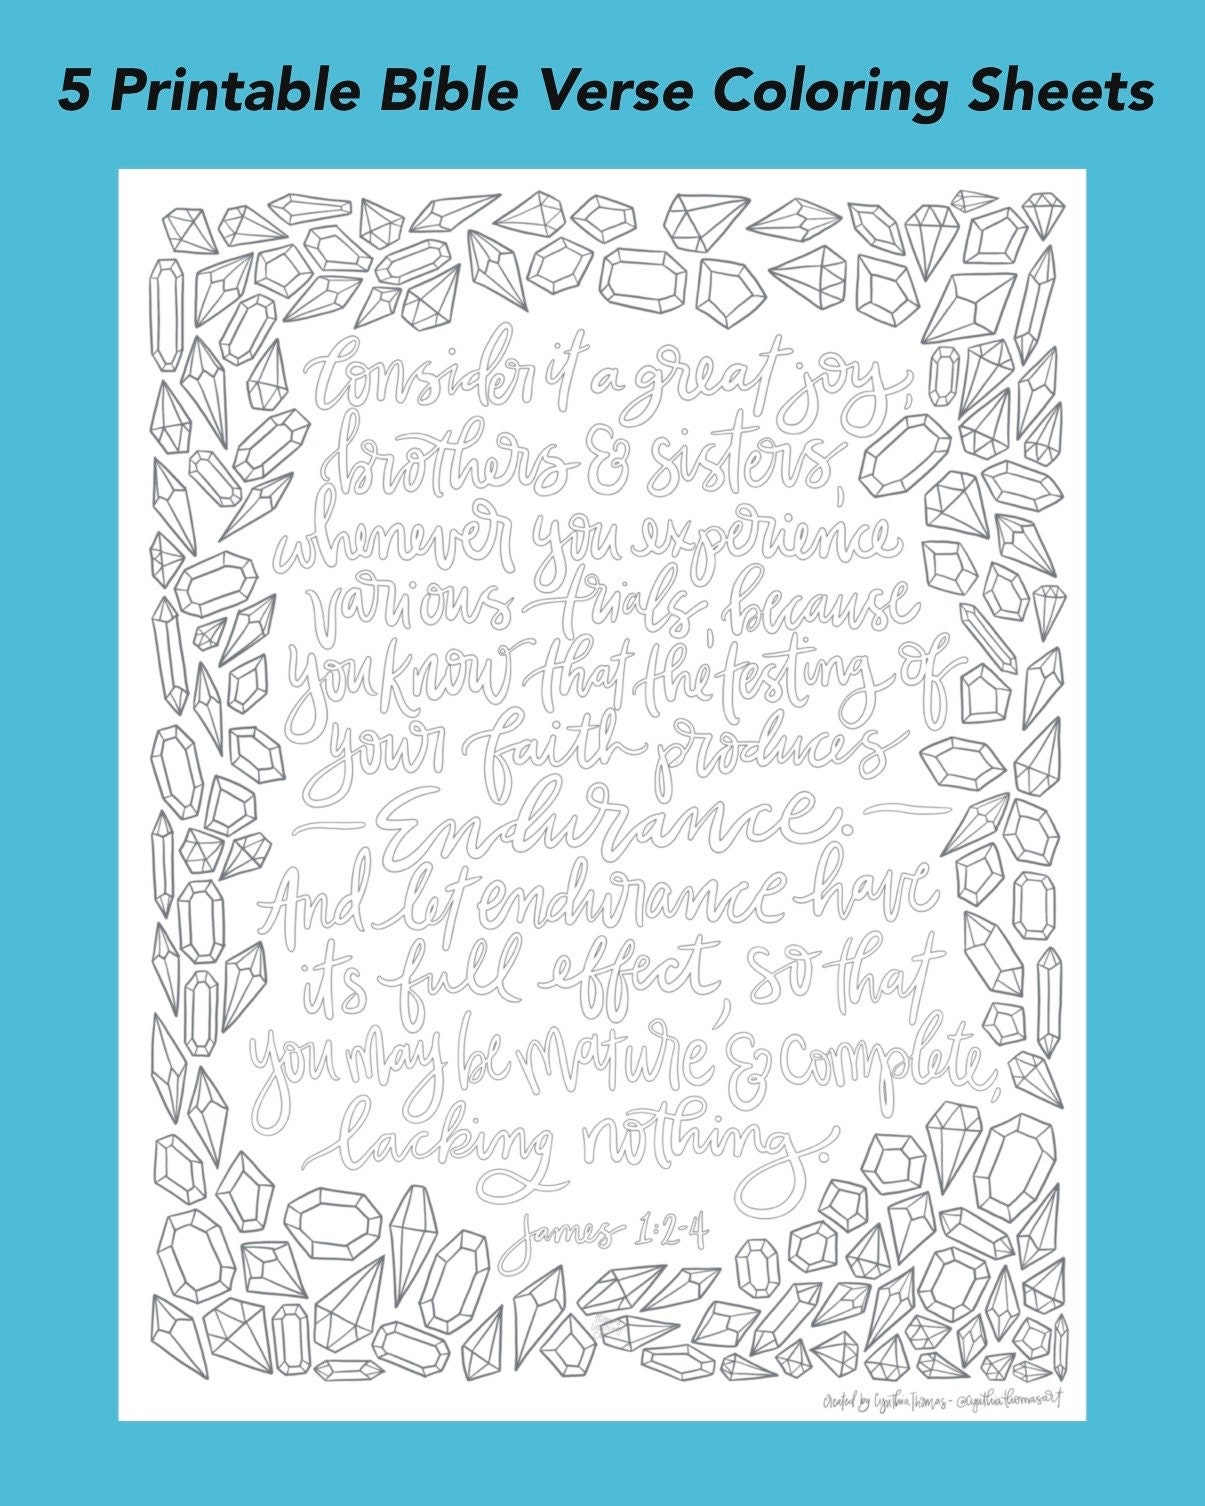 5 Printable Bible Verse Coloring Sheets
Consider it a great joy,
brothers & sisters,
whenever you experience
various trials, because
you know that the testing of
your faith produces
— Endurance. —
And let endurance have
its full effect, so that
you may be mature & complete,
lacking nothing.
James 1:2-4
created by Cynthia Thomas - @cynthiathomasart